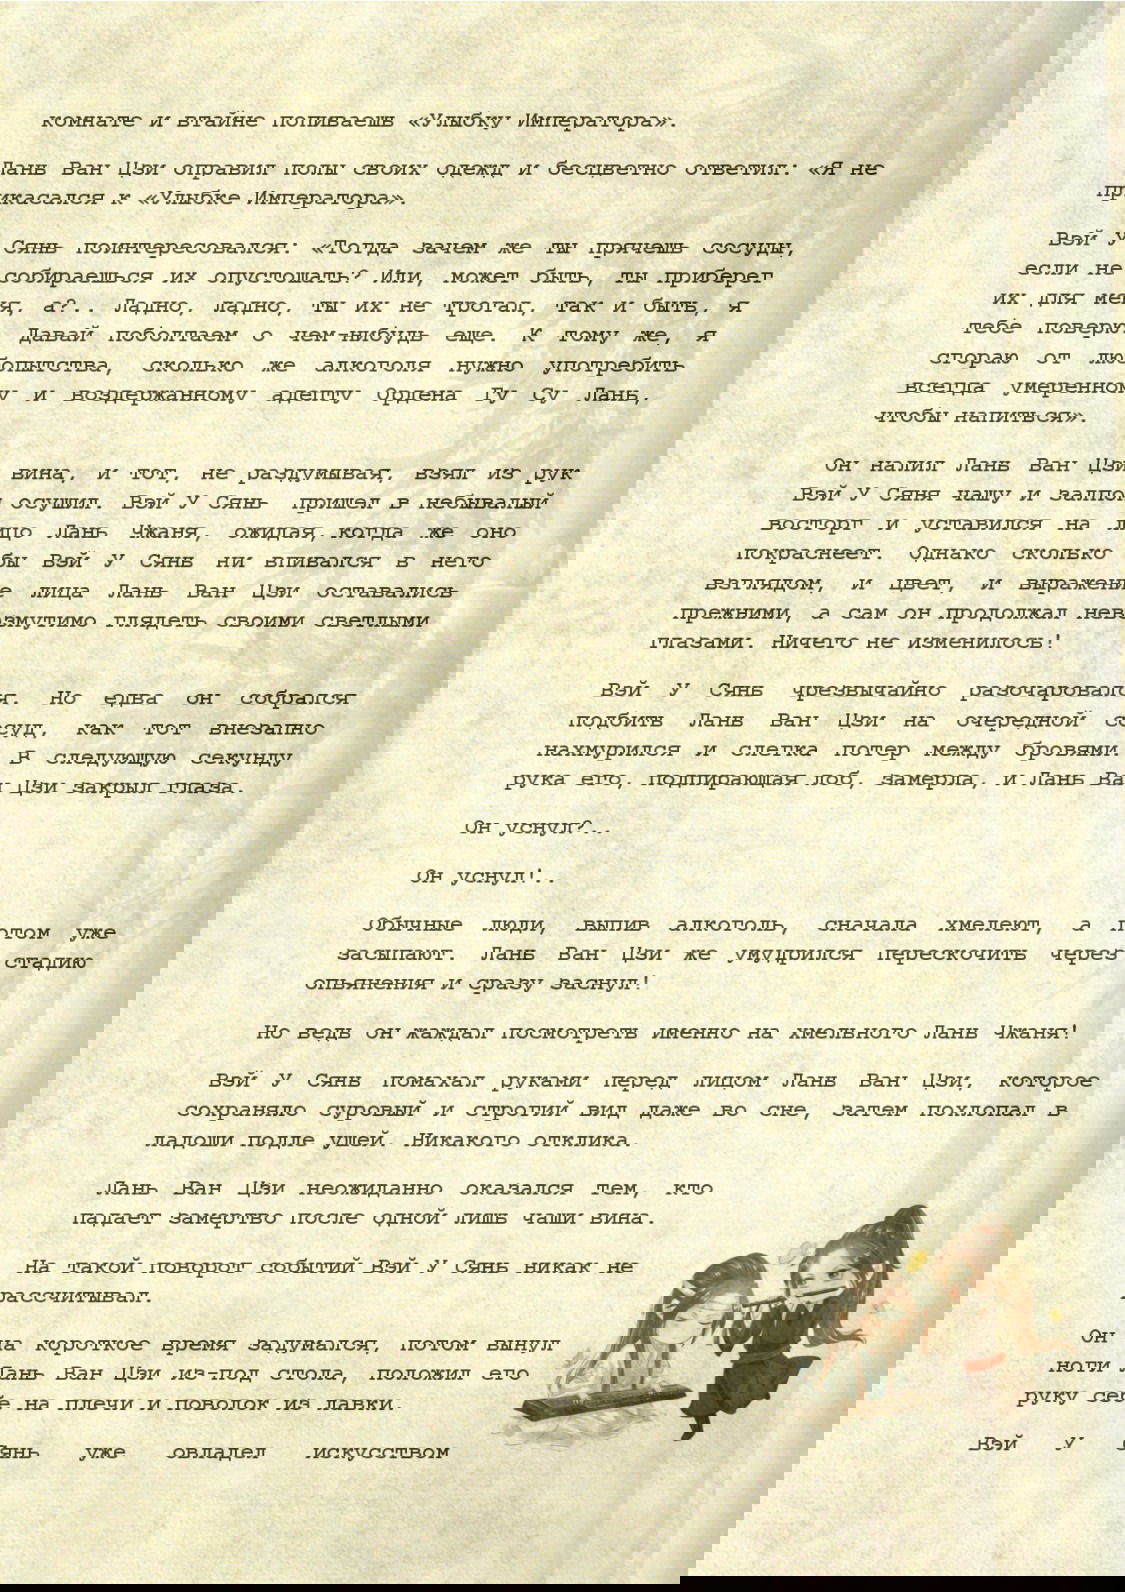 комнате и втайне попиваешь «Улыбку Императора».
Лань Ван Цзи оправил полы своих одежд и бесцветно ответил: «Я не
прикасался к «Улыбке Императора».
Вэй У Сянь поинтересовался: «Тогда зачем же ты прячешь сосуды,
если не собираешься их опустошать? Или, может быть, ты приберег
их для меня, а?.. Ладно, ладно, ты их не трогал, так и быть, я
тебе поверю. Давай поболтаем о чем-нибудь еще. К тому же, я
сгораю от любопытства, сколько же алкоголя нужно употребить
всегда умеренному и воздержанному адепту Ордена Гу Су Лань,
чтобы напиться».
Он налил Лань Ван Цзи вина, и тот, не раздумывая, взял из рук
Вэй У Сяня чашу и залпом осушил. Вэй У Сянь пришел в небывалый
восторг и уставился на лицо Лань Чжаня, ожидая, когда же оно
покраснеет. Однако сколько бы Вэй У Сянь ни впивался в него
взглядом, и цвет, и выражение лица Лань Ван Цзи оставались
прежними, а сам он продолжал невозмутимо глядеть своими светлыми
глазами. Ничего не изменилось!
Вэй У Сянь чрезвычайно разочаровался. Но едва он собрался
подбить Лань Ван Цзи на очередной сосуд, как тот внезапно
нахмурился и слегка потер между бровями. В следующую секунду
рука его, подпирающая лоб, замерла, и Лань Ван Цзи закрыл глаза.
Он уснул?..
Он уснул!..
Обычные люди, выпив алкоголь, сначала хмелеют, а потом уже
засыпают. Лань Ван Цзи же умудрился перескочить через стадию
опьянения и сразу заснул!
Но ведь он жаждал посмотреть именно на хмельного Лань Чжаня!
Вэй У Сянь помахал руками перед лицом Лань Ван Цзи, которое
сохраняло суровый и строгий вид даже во сне, затем похлопал в
ладоши подле ушей. Никакого отклика.
Лань Ван Цзи неожиданно оказался тем, кто
падает замертво после одной лишь чаши вина.
На такой поворот событий Вэй У Сянь никак не
рассчитывал.
Он на короткое время задумался, потом вынул
ноги Лань Ван Цзи из-под стола, положил его
руку себе на плечи и поволок из лавки.
Вэй У Сянь уже овладел искусством